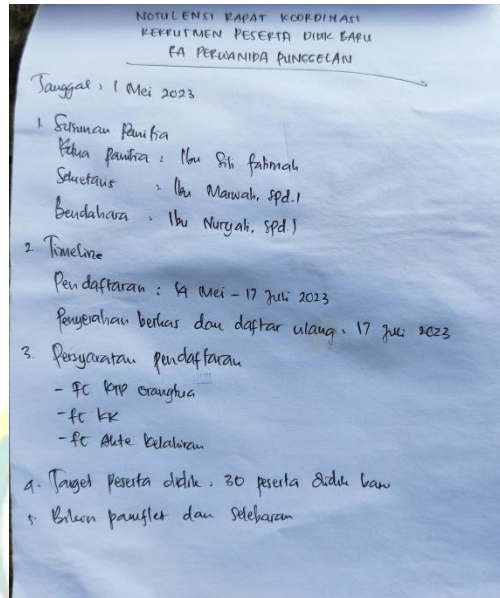 NOTULENSI RAPAT KOORDINASI
REKRUTMEN PESERTA DIDIK BARU
RA PERWANIDA PUNGGELAN
Tanggal : 1 Mei 2023
1. Susunan Panitia
Ketua panitia : Ibu Siti fatimah
Sekretaris : Ibu Marwah, spd.I
Bendahara : Ibu Nuryah, spd.I
2 Timeline
Pendaftaran : Mei - 17 Juli 2023
Penyerahan berkas dan daftar ulang : 17 Juli 2023
3. Persyaratan pendaftaran
- fc KTP orangtua
- fc KK
- fc Akte kelahiran
4. Target peserta didik : 30 peserta didik baru
5. Bikin pamflet dan selebaran